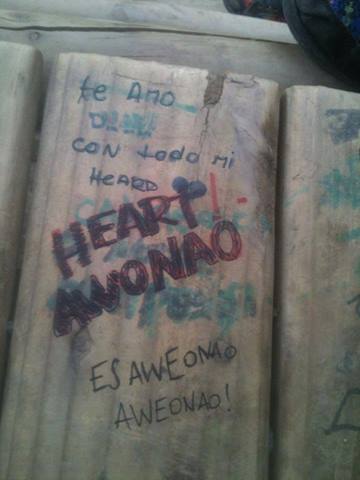 te AMO
CON todo mi
HEARD
HEART
AWONAO
ES AWEONAO
AWEONAO!